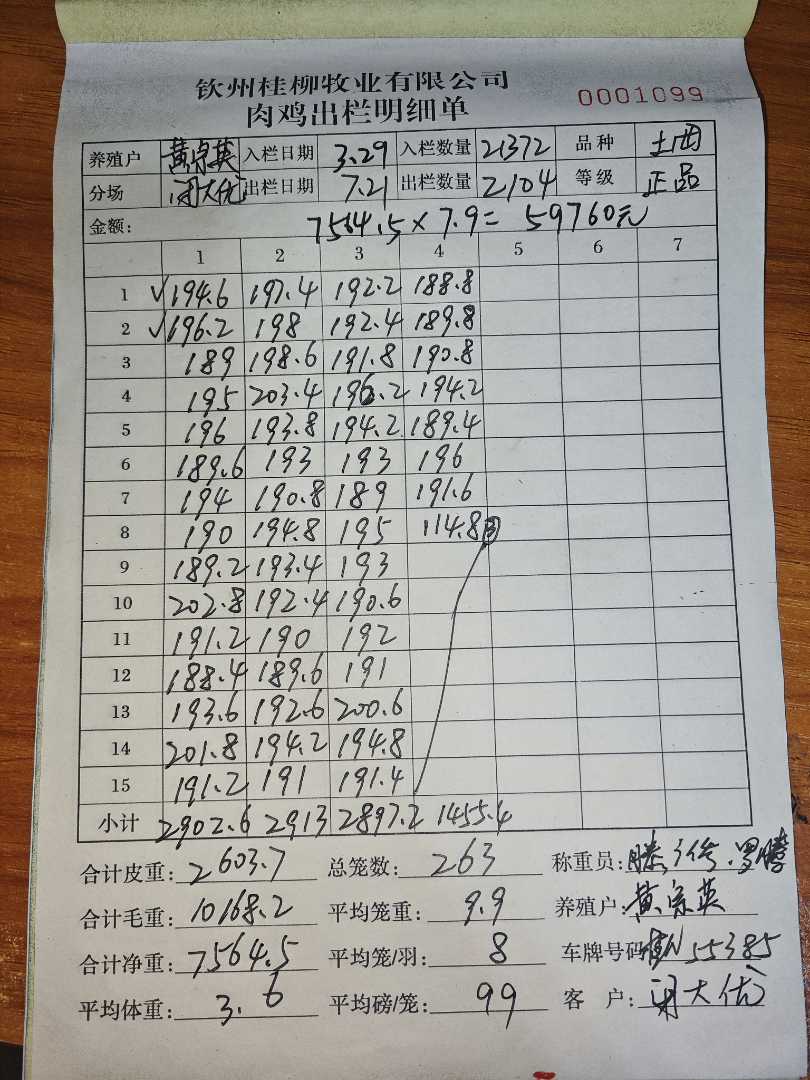 钦州桂柳牧业有限公司
肉鸡出栏明细单 0001099
养殖户 黄宗英 入栏日期 3.29 入栏数量 21372 品种 土西
分场 闭大优 出栏日期 7.21 出栏数量 2104 等级 正品
金额: 7564.5×7.9=59760元
1 2 3 4 5 6 7
1 √194.6 197.4 192.2 188.8
2 √196.2 198 192.4 189.8
3 189 198.6 191.8 190.8
4 195 203.4 196.2 194.2
5 196 193.8 194.2 189.4
6 189.6 193 193 196
7 194 190.8 189 191.6
8 190 194.8 195 114.8
9 189.2 193.4 193
10 202.8 192.4 190.6
11 191.2 190 192
12 188.4 189.6 191
13 193.6 192.6 200.6
14 201.8 194.2 194.8
15 191.2 191 191.4
小计 2902.6 2913 2897.2 1455.4
合计皮重: 2603.7 总笼数: 263 称重员:
合计毛重: 10168.2 平均笼重: 9.9 养殖户: 黄宗英
合计净重: 7564.5 平均笼/羽: 8 车牌号码 55385
平均体重: 3.6 平均磅/笼: 99 客户: 闭大优